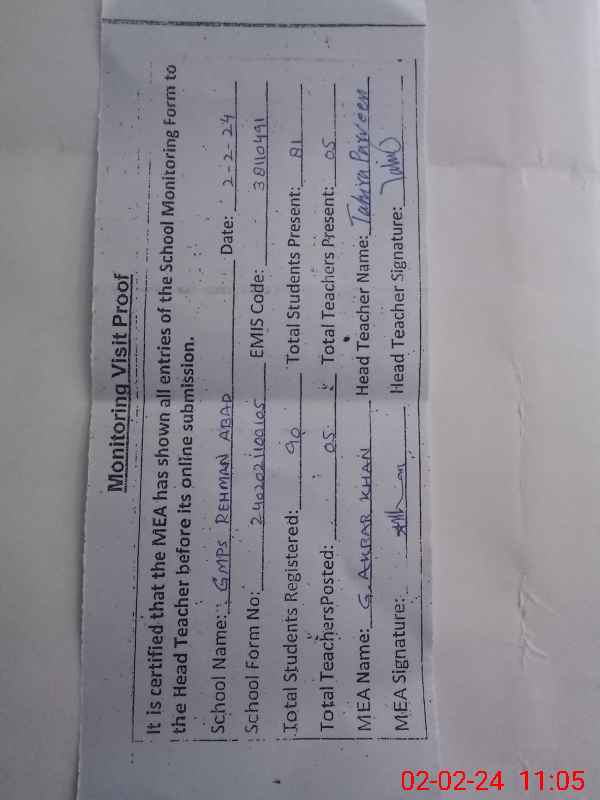 Monitoring Visit Proof
It is certified that the MEA has shown all entries of the School Monitoring Form to
the Head Teacher before its online submission.
School Name: GMPS REHMAN ABAD Date: 2-2-24
School Form No: 2402021100105 EMIS Code: 38110491
Total Students Registered: 90 Total Students Present: 81
Total TeachersPosted: 05 Total Teachers Present: 05
MEA Name: G. AKBAR KHAN Head Teacher Name: Tahira Parveen
MEA Signature: Head Teacher Signature:
02-02-24 11:05